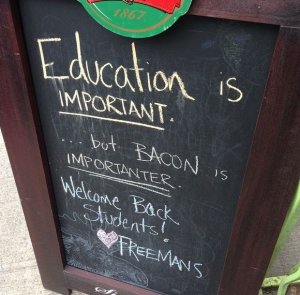 1867
Education is
IMPORTANT.
... but BACON is
IMPORTANTER.
Welcome Back
Students!
FREEMANS